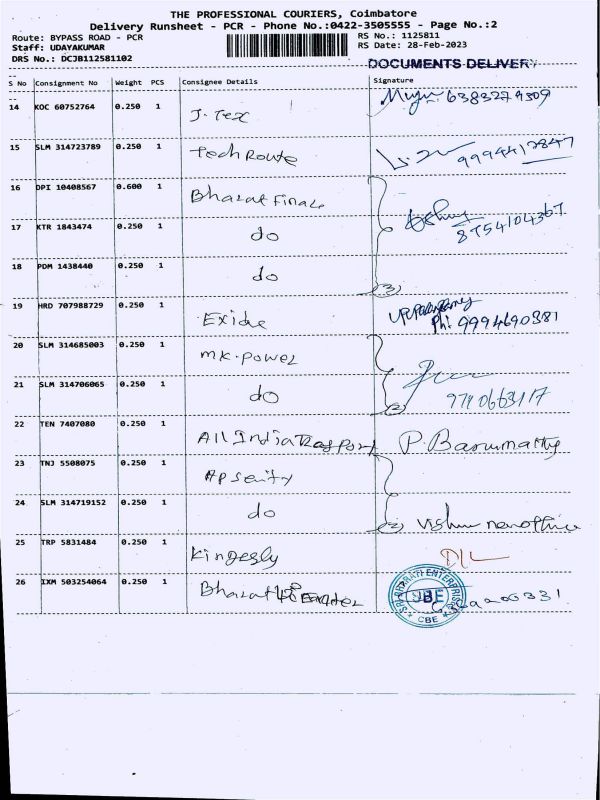 THE PROFESSIONAL COURIERS, Coimbatore
Delivery Runsheet - PCR - Phone No.:0422-3505555 - Page No.:2
Route: BYPASS ROAD - PCR
RS No.: 1125811
Staff: UDAYAKUMAR
RS Date: 28-Feb-2023
DRS No.: DCJB112581102
DOCUMENTS DELIVERY
S No Consignment No Weight PCS Consignee Details Signature
14 KOC 60752764 0.250 1 J. Tex 6383279309
15 SLM 314723789 0.250 1 Tech Route 9994412847
16 DPI 10408567 0.600 1 Bharat Finance
17 KTR 1843474 0.250 1 do 8754104367
18 PDM 1438440 0.250 1 do (3)
19 HRD 707988729 0.250 1 Exide
Ph: 9994690381
20 SLM 314685003 0.250 1 MK. Power
21 SLM 314706065 0.250 1 do (2) 9790663117
22 TEN 7407080 0.250 1 All India P.
23 TNJ 5508075 0.250 1 AP
24 SLM 314719152 0.250 1 do (2) Vishnu
25 TRP 5831484 0.250 1
26 IXM 503254064 0.250 1 Bharat
SRI BHARATI ENTERPRISE
CBE